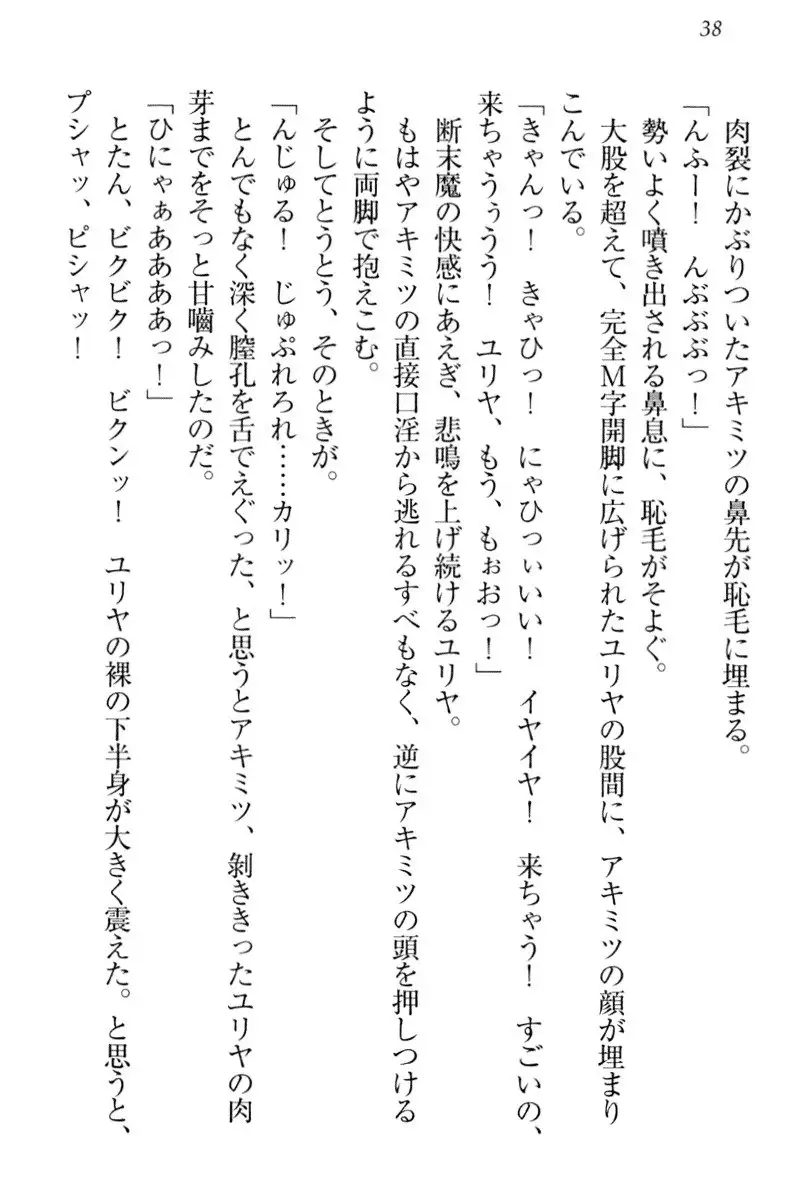 38
肉裂にかぶりついたアキミツの鼻先が恥毛に埋まる。
「んふー！　んぶぶぶっ！」
勢いよく噴き出される鼻息に、恥毛がそよぐ。
大股を超えて、完全Ｍ字開脚に広げられたユリヤの股間に、アキミツの顔が埋まり
こんでいる。
「きゃんっ！　きゃひっ！　にゃひっぃいい！　イヤイヤ！　来ちゃう！　すごいの、
来ちゃうぅうう！　ユリヤ、もう、もぉおっ！」
断末魔の快感にあえぎ、悲鳴を上げ続けるユリヤ。
もはやアキミツの直接口淫から逃れるすべもなく、逆にアキミツの頭を押しつける
ように両脚で抱えこむ。
そしてとうとう、そのときが。
「んじゅる！　じゅぷれろれ……カリッ！」
とんでもなく深く膣孔を舌でえぐった、と思うとアキミツ、剝ききったユリヤの肉
芽までをそっと甘嚙みしたのだ。
「ひにゃぁああああっ！」
とたん、ビクビク！　ビクンッ！　ユリヤの裸の下半身が大きく震えた。と思うと、
プシャッ、ピシャッ！